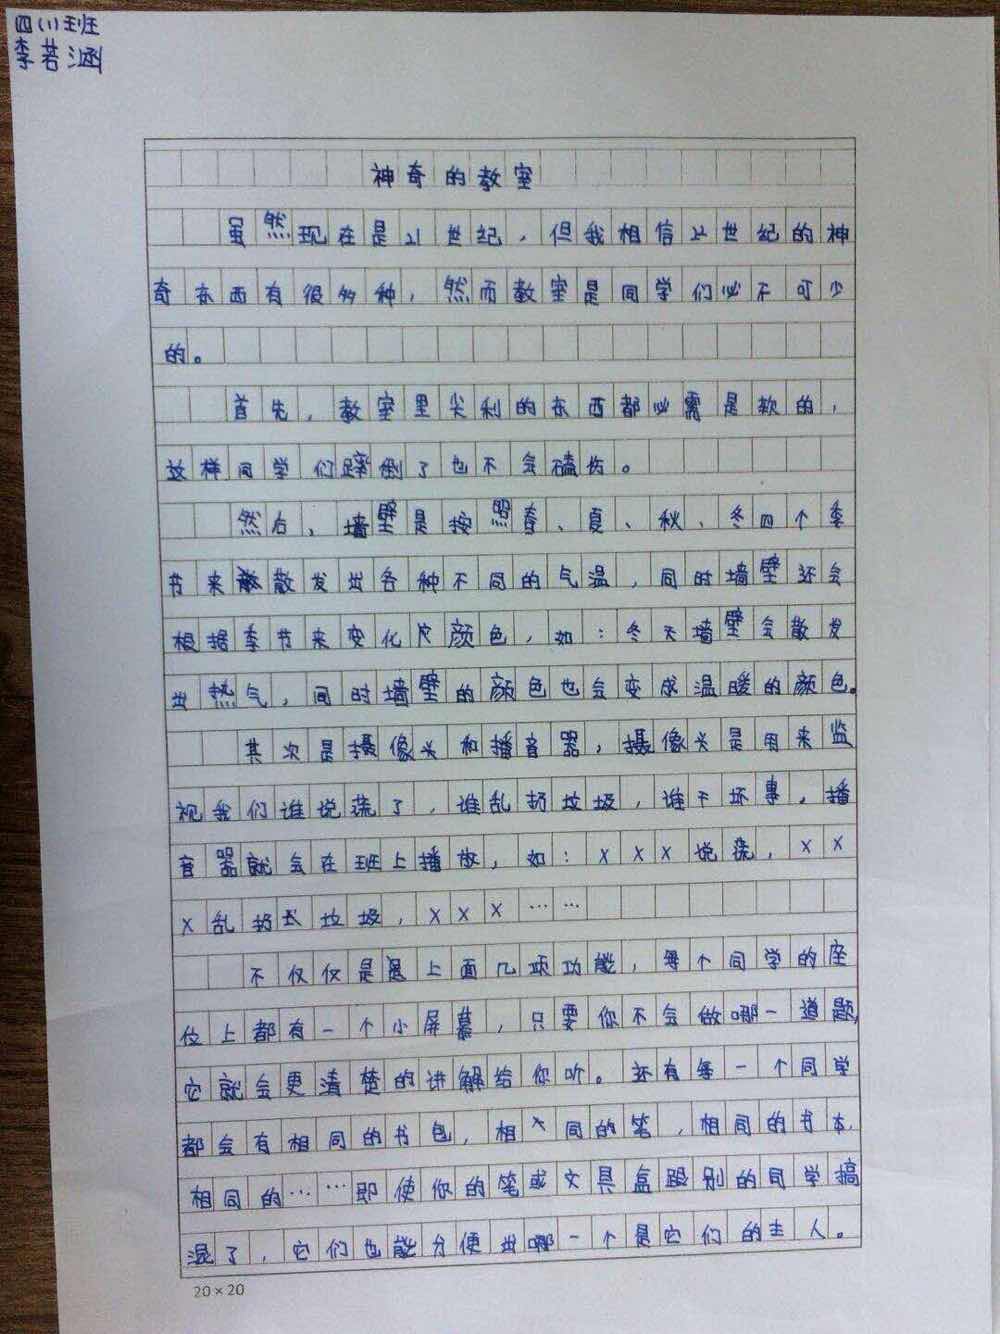 四(1)班
李若涵
神奇的教室
虽然现在是21世纪，但我相信22世纪的神
奇东西有很多种，然而教室是同学们必不可少
的。
首先，教室里尖利的东西都必需是软的，
这样同学们蹿倒了也不会磕伤。
然后，墙壁是按照春、夏、秋、冬四个季
节来散散发出各种不同的气温，同时墙壁还会
根据季节来变化应颜色，如：冬天墙壁会散发
出热气，同时墙壁的颜色也会变成温暖的颜色。
其次是摄像头和播音器，摄像头是用来监
视我们谁说蔬了，谁乱扔垃圾，谁干坏事。播
音器就会在班上播放，如：XXX说流，XX
X乱扔垃圾，XXX……
不仅仅是上面几项功能，每个同学的座
位上都有一个小屏幕，只要你不会做哪一道题，
它就会更清楚的讲解给你听。还有每一个同学
都会有相同的书包，相同的笔，相同的书本，
相同的……即使你的笔或文具盒跟别的同学搞
混了，它们也能分便出哪一个是它们的主人。
20×20